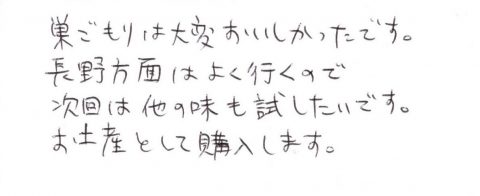 巣ごもりは大変おいしかったです。
長野方面はよく行くので
次回は他の味も試したいです。
お土産として購入します。